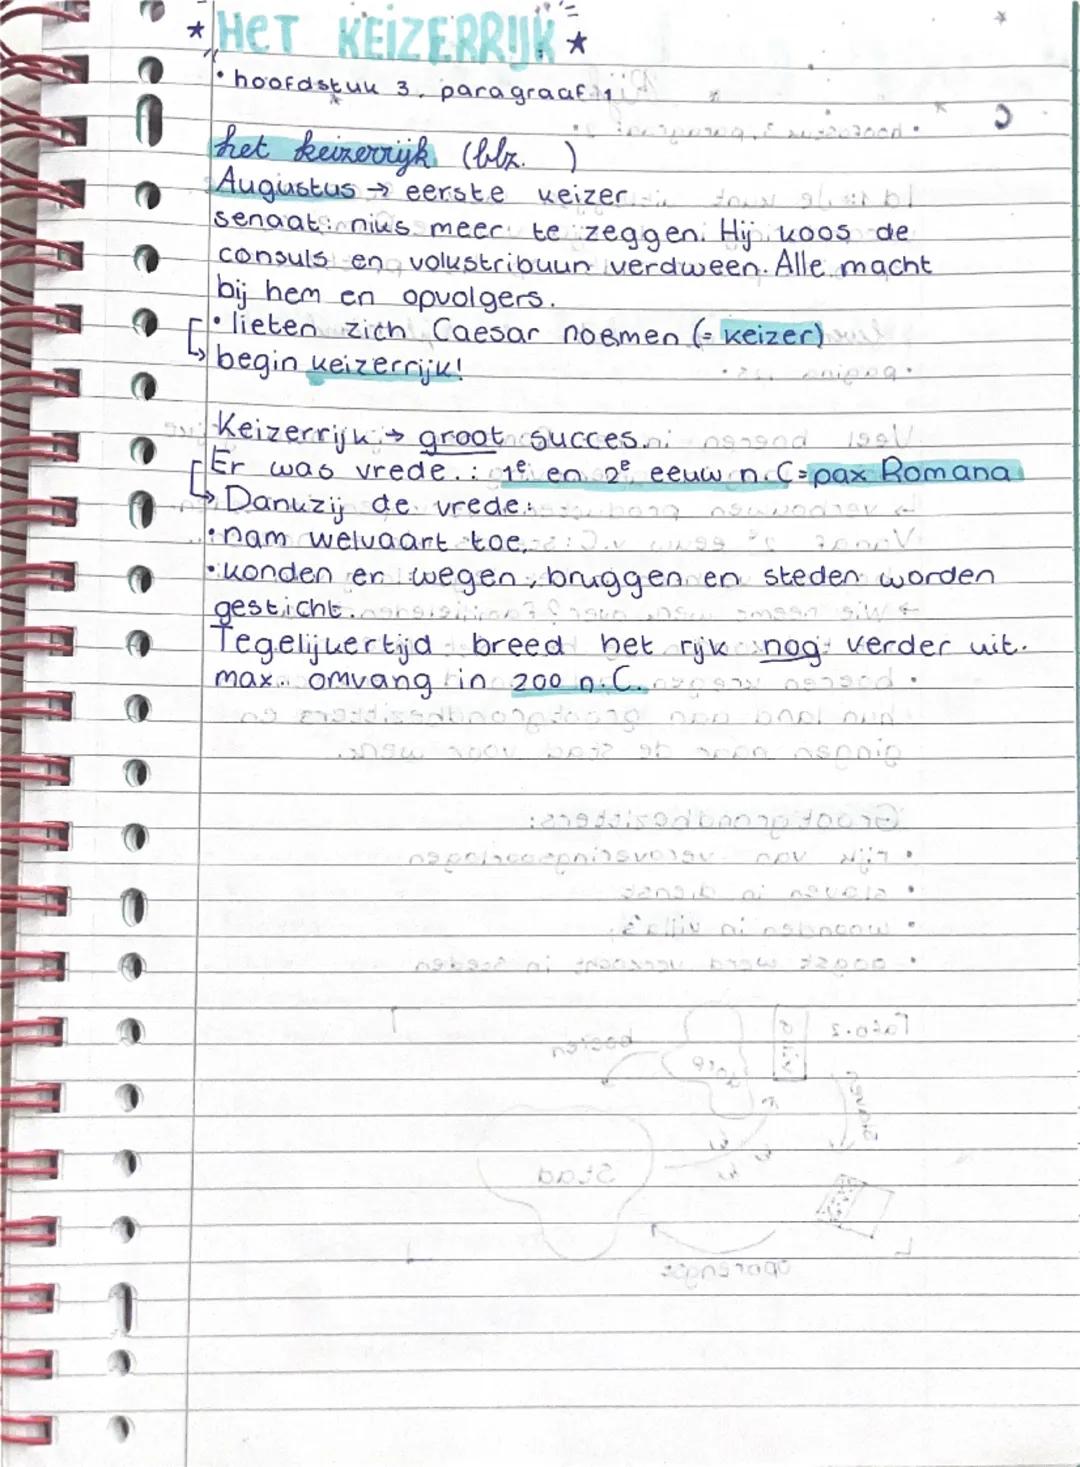 HET KEIZERRIJK
• hoofdstuk 3. paragraaf 1
het keizerrijk (blz. )
Augustus → eerste keizer
senaat: niks meer te zeggen. Hij koos de
consuls en volkstribuun verdween. Alle macht
bij hem en opvolgers.
• lieten zich Caesar noemen (= keizer)
begin keizerrijk!
Keizerrijk → groot succes.
Er was vrede.: 1e en 2e eeuw n.C = pax Romana
Dankzij de vrede:
• nam welvaart toe.
• konden er wegen, bruggen en steden worden
gesticht.
Tegelijkertijd breed het rijk nog verder uit.
max. omvang in 200 n.C.